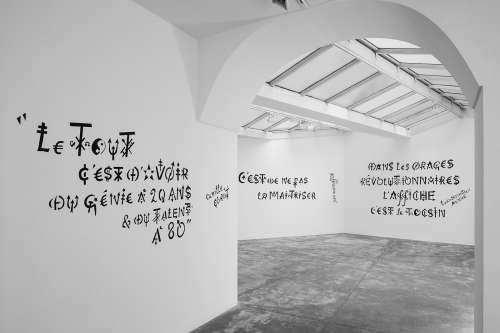 "Le TOUT
C'EST D'AVOIR
DU GÉNIE A 20 ANS
& DU TALENT
A 80"
C'EST DE NE PAS
LA MAITRISER
DANS LES ORAGES
RÉVOLUTIONNAIRES
L'AFFICHE
C'EST le TOCSIN